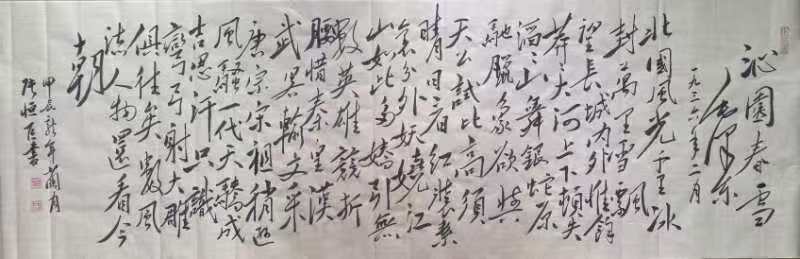 沁園春雪
毛澤东
一九三六年二月
北國風光千里冰
封萬里雪飄
望長城内外惟餘
莽莽大河上下頓失
滔滔山舞銀蛇原
馳臘象欲與
天公試比高須
晴日看紅裝素
裹分外妖嬈江
山如此多嬌引無
數英雄競折
腰惜秦皇漢
武畧輸文采
唐宗宋祖稍遜
風騷一代天驕成
吉思汗只識
彎弓射大雕
俱往矣數風
流人物還看今
朝
甲辰龙年蘭月
張恒書